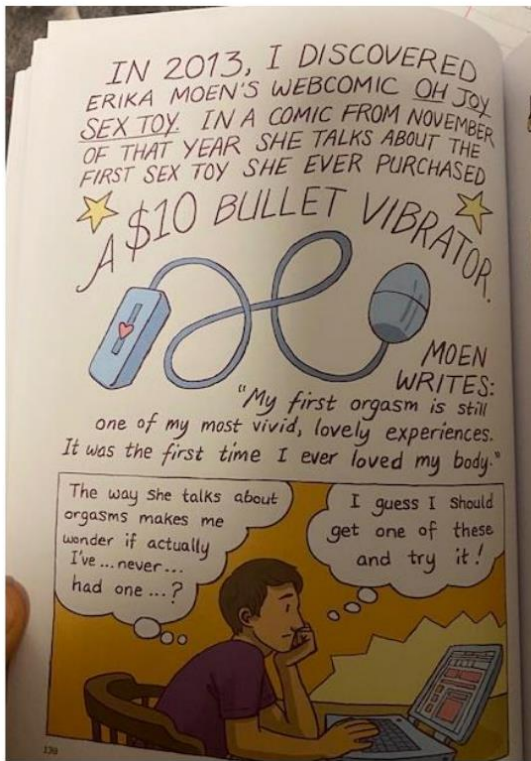 IN 2013, I DISCOVERED
ERIKA MOEN'S WEBCOMIC OH JOY
SEX TOY. IN A COMIC FROM NOVEMBER
OF THAT YEAR SHE TALKS ABOUT THE
FIRST SEX TOY SHE EVER PURCHASED
A $10 BULLET VIBRATOR.
MOEN
WRITES:
"My first orgasm is still
one of my most vivid, lovely experiences.
It was the first time I ever loved my body."
The way she talks about
orgasms makes me
wonder if actually
I've ... never ...
had one ... ?
I guess I should
get one of these
and try it!
130